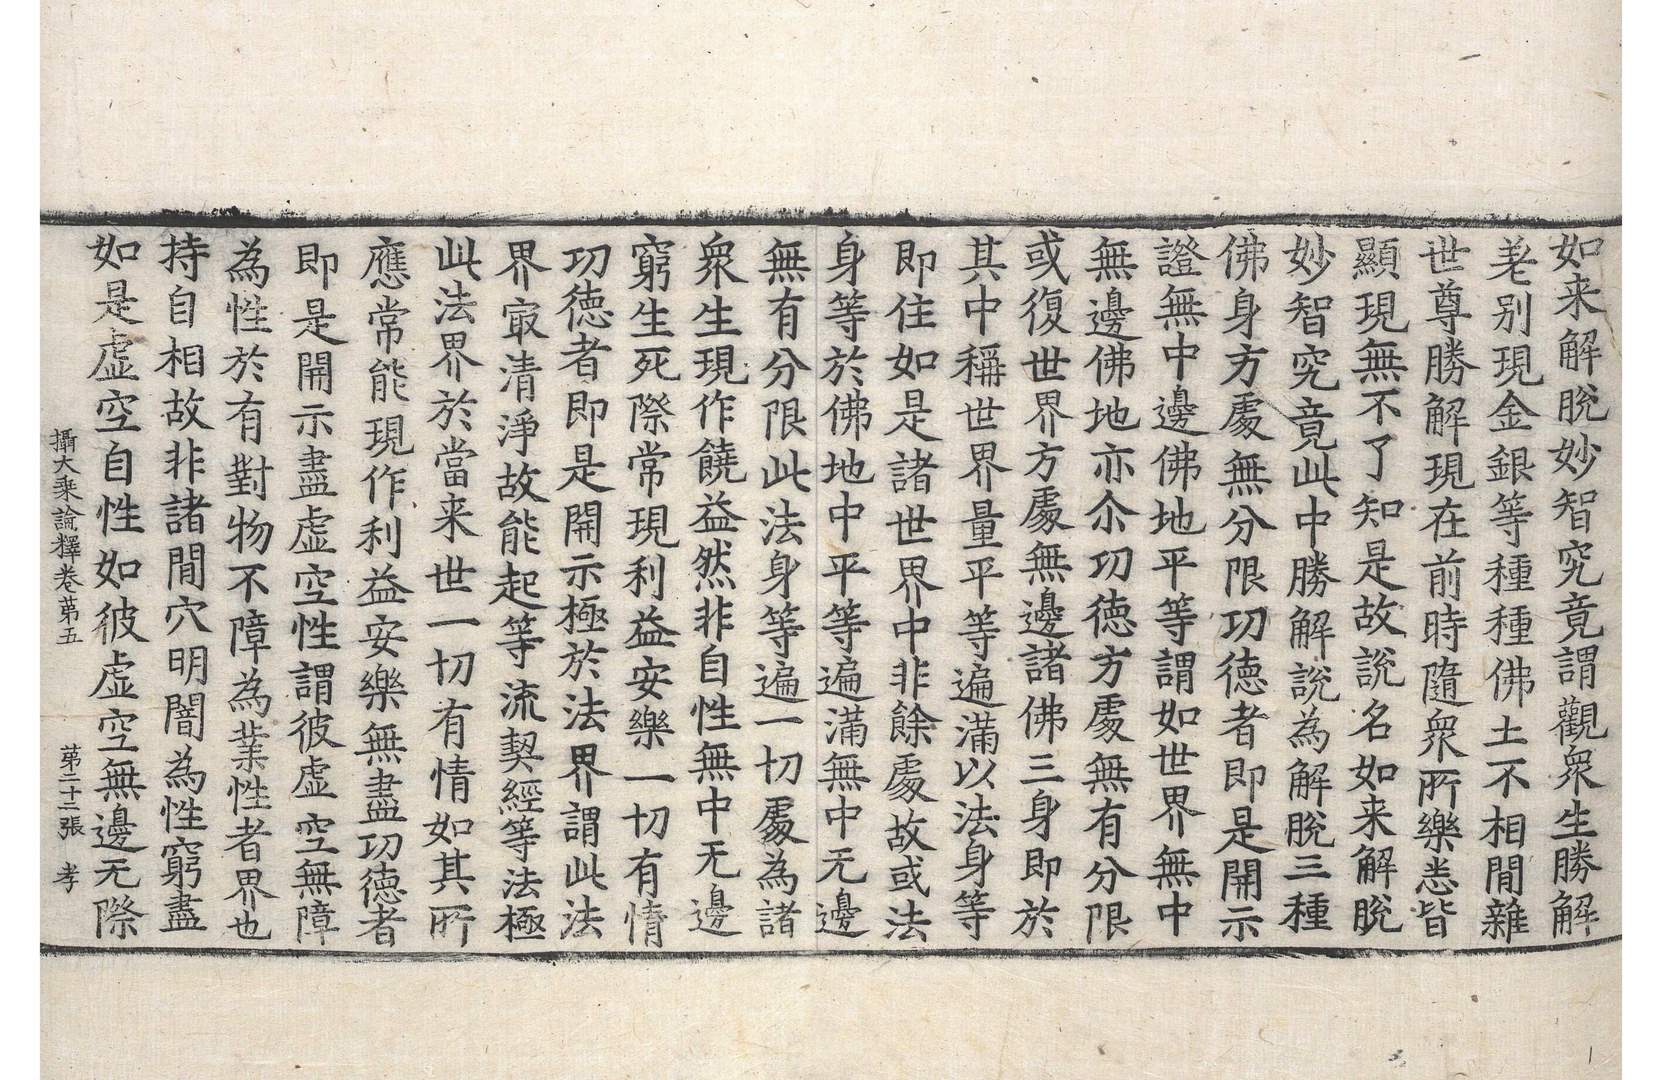 如来解脫妙智究竟謂觀衆生勝解
差別現金銀等種種佛土不相閒雜
世尊勝解現在前時隨衆所樂悉皆
顯現無不了知是故說名如来解脫
妙智究竟此中勝解說為解脫三種
佛身方處無分限功德者即是開示
證無中邊佛地平等謂如世界無中
無邊佛地亦尒功德方處無有分限
或復世界方處無邊諸佛三身即於
其中稱世界量平等遍滿以法身等
即住如是諸世界中非餘處故或法
身等於佛地中平等遍滿無中无邊
無有分限此法身等遍一切處為諸
衆生現作饒益然非自性無中无邊
窮生死際常現利益安樂一切有情
功德者即是開示極於法界謂此法
界㝡清淨故能起等流契經等法極
此法界於當来世一切有情如其所
應常能現作利益安樂無盡功德者
即是開示盡虛空性謂彼虛空無障
為性於有對物不障為業性者界也
持自相故非諸閒穴明闇為性窮盡
如是虛空自性如彼虛空無邊无際
攝大乘論釋卷第五 第二十二張 孝